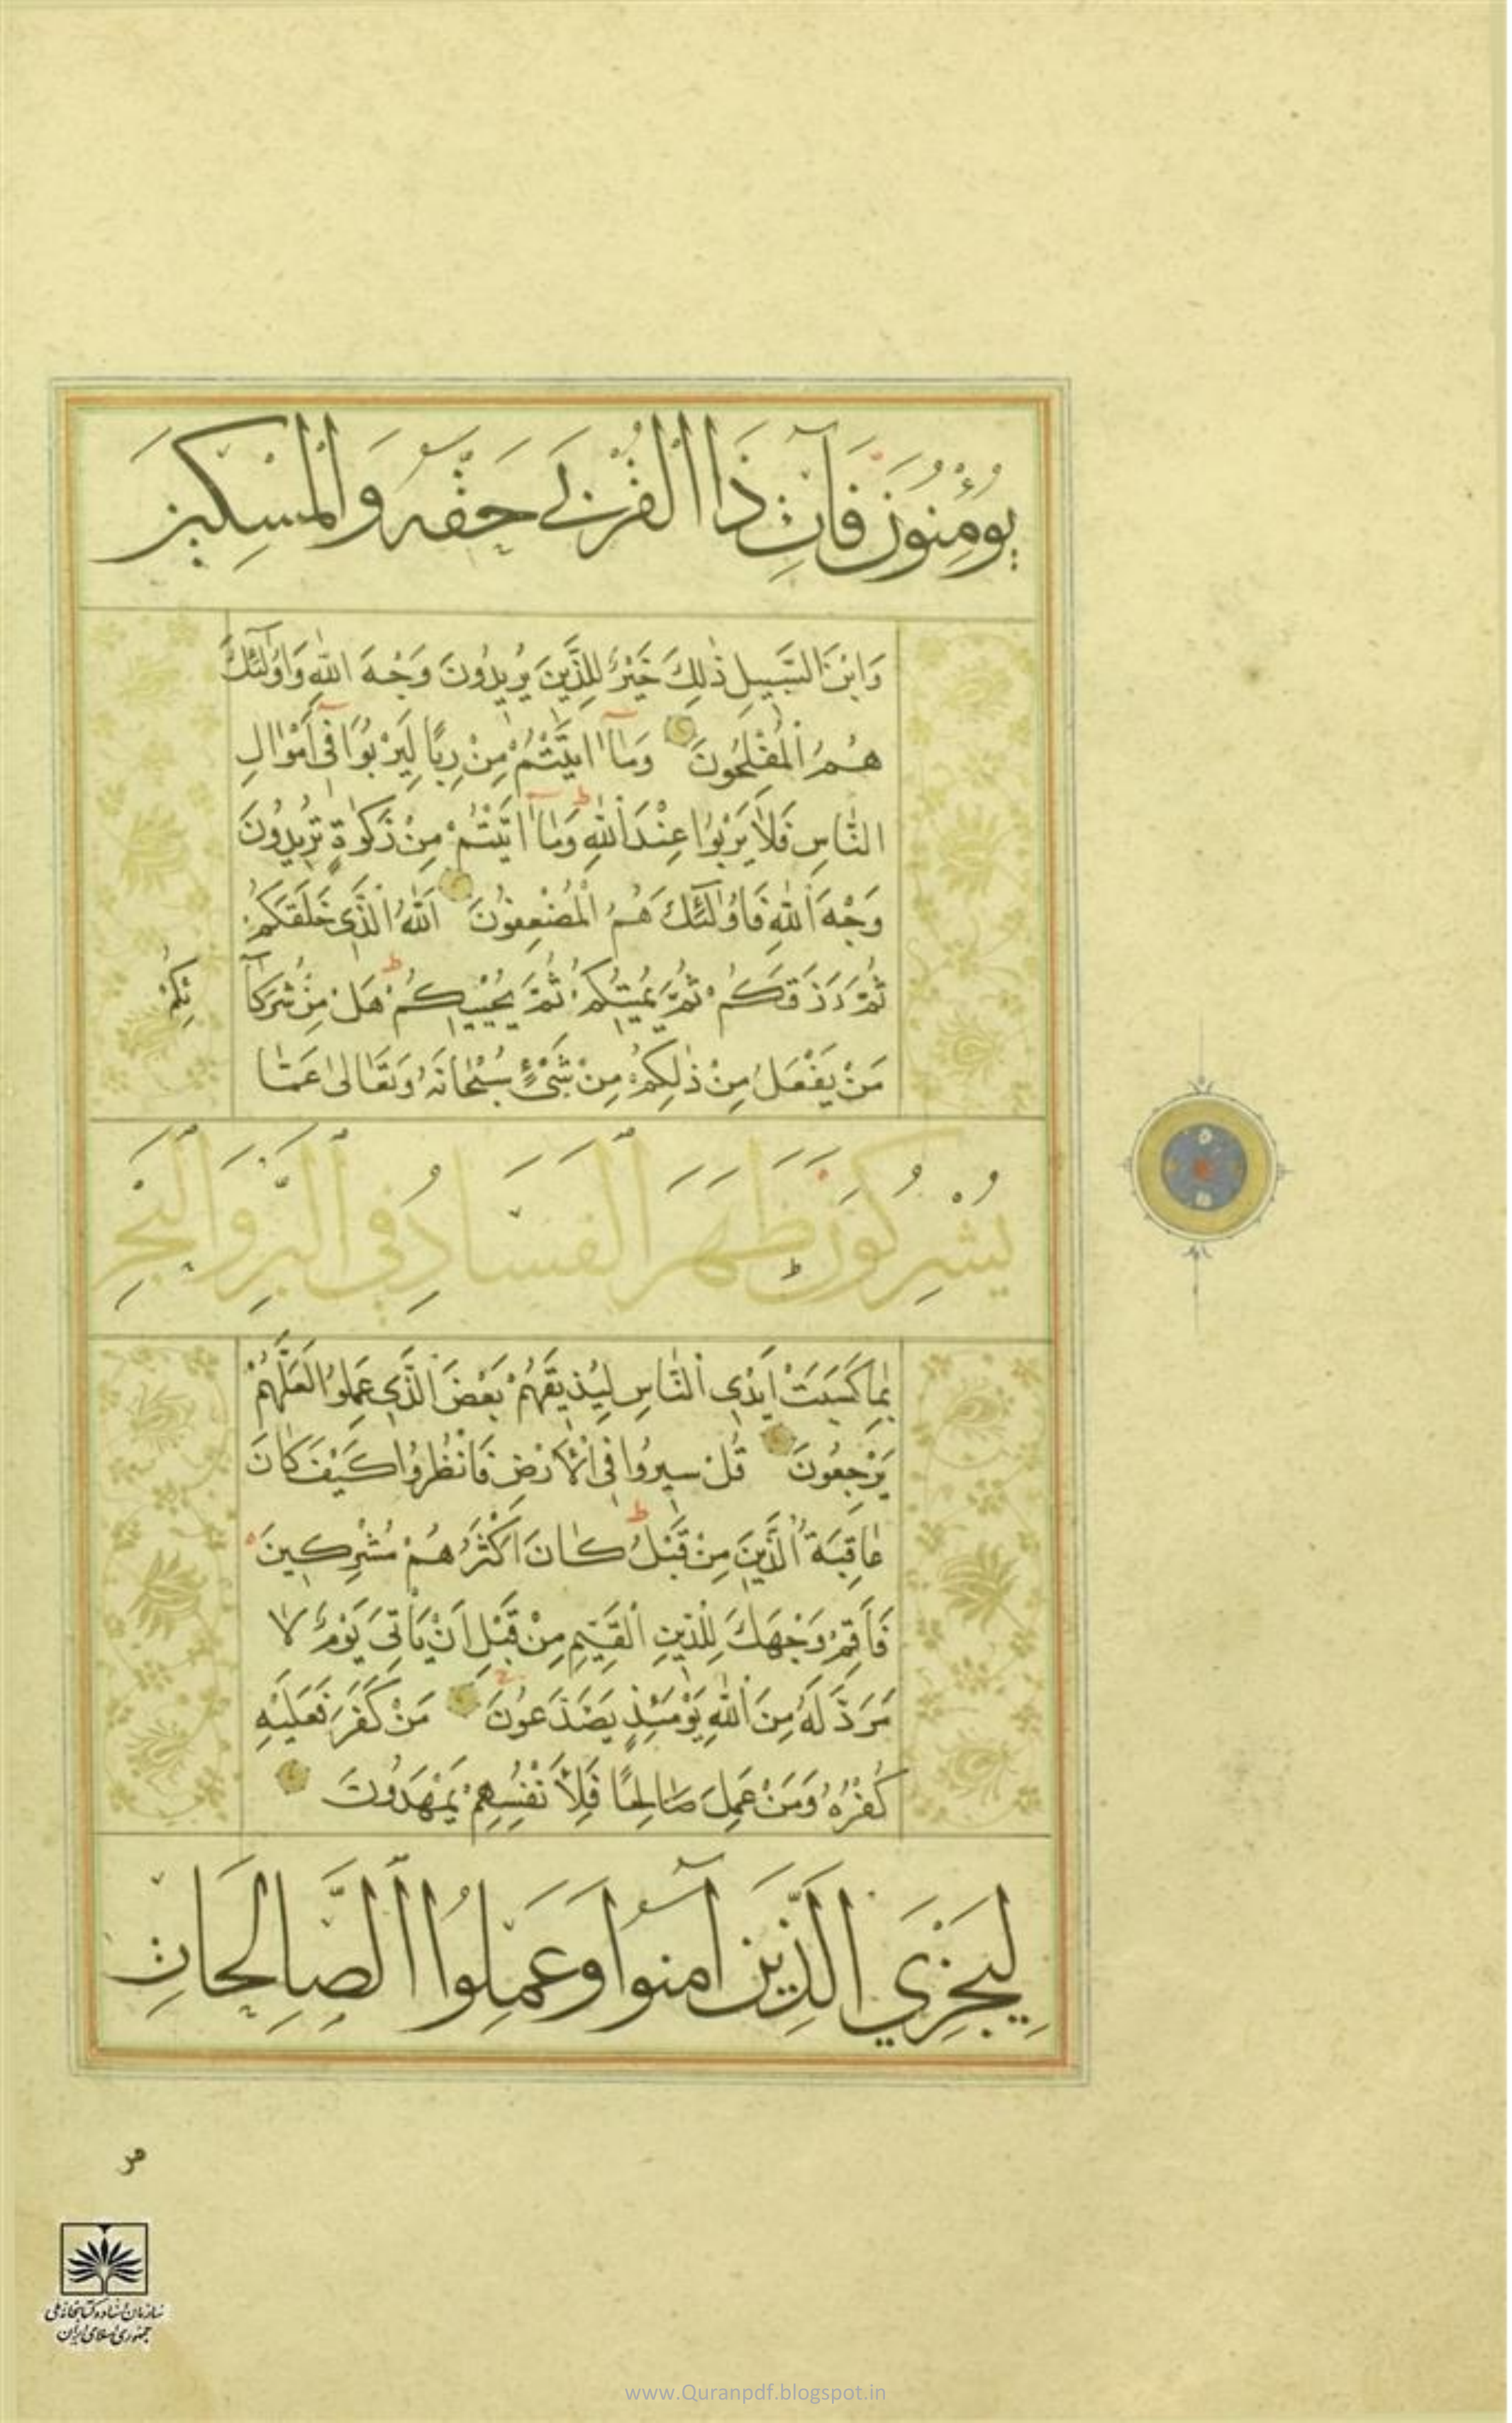 يُؤْمِنُونَ فَآتِ ذَا الْقُرْبَى حَقَّهُ وَالْمِسْكِينَ
وَابْنَ السَّبِيلِ ذٰلِكَ خَيْرٌ لِلَّذِينَ يُرِيدُونَ وَجْهَ اللّٰهِ وَاُولٰٓئِكَ
هُمُ الْمُفْلِحُونَ وَمَٓا اٰتَيْتُمْ مِنْ رِبًا لِيَرْبُوَا فِٓى اَمْوَالِ
النَّاسِ فَلَا يَرْبُوا عِنْدَ اللّٰهِ وَمَٓا اٰتَيْتُمْ مِنْ زَكٰوةٍ تُرِيدُونَ
وَجْهَ اللّٰهِ فَاُولٰٓئِكَ هُمُ الْمُضْعِفُونَ اَللّٰهُ الَّذِى خَلَقَكُمْ
ثُمَّ رَزَقَكُمْ ثُمَّ يُمِيتُكُمْ ثُمَّ يُحْيِيكُمْ هَلْ مِنْ شُرَكَٓا
ئِكُمْ
مَنْ يَفْعَلُ مِنْ ذٰلِكُمْ مِنْ شَىْءٍ سُبْحَانَهُ وَتَعَالٰى عَمَّا
يُشْرِكُونَ ظَهَرَ الْفَسَادُ فِي الْبَرِّ وَالْبَحْرِ
بِمَا كَسَبَتْ اَيْدِى النَّاسِ لِيُذِيقَهُمْ بَعْضَ الَّذِى عَمِلُوا لَعَلَّهُمْ
يَرْجِعُونَ قُلْ سِيرُوا فِى الْاَرْضِ فَانْظُرُوا كَيْفَ كَانَ
عَاقِبَةُ الَّذِينَ مِنْ قَبْلُ كَانَ اَكْثَرُهُمْ مُشْرِكِينَ
فَاَقِمْ وَجْهَكَ لِلدِّينِ الْقَيِّمِ مِنْ قَبْلِ اَنْ يَاْتِىَ يَوْمٌ لَا
مَرَدَّ لَهُ مِنَ اللّٰهِ يَوْمَئِذٍ يَصَّدَّعُونَ مَنْ كَفَرَ فَعَلَيْهِ
كُفْرُهُ وَمَنْ عَمِلَ صَالِحًا فَلِاَنْفُسِهِمْ يَمْهَدُونَ
لِيَجْزِيَ الَّذِينَ آمَنُوا وَعَمِلُوا الصَّالِحَاتِ
سازمان اسناد و کتابخانه ملی
جمهوری اسلامی ایران
www.Quranpdf.blogspot.in